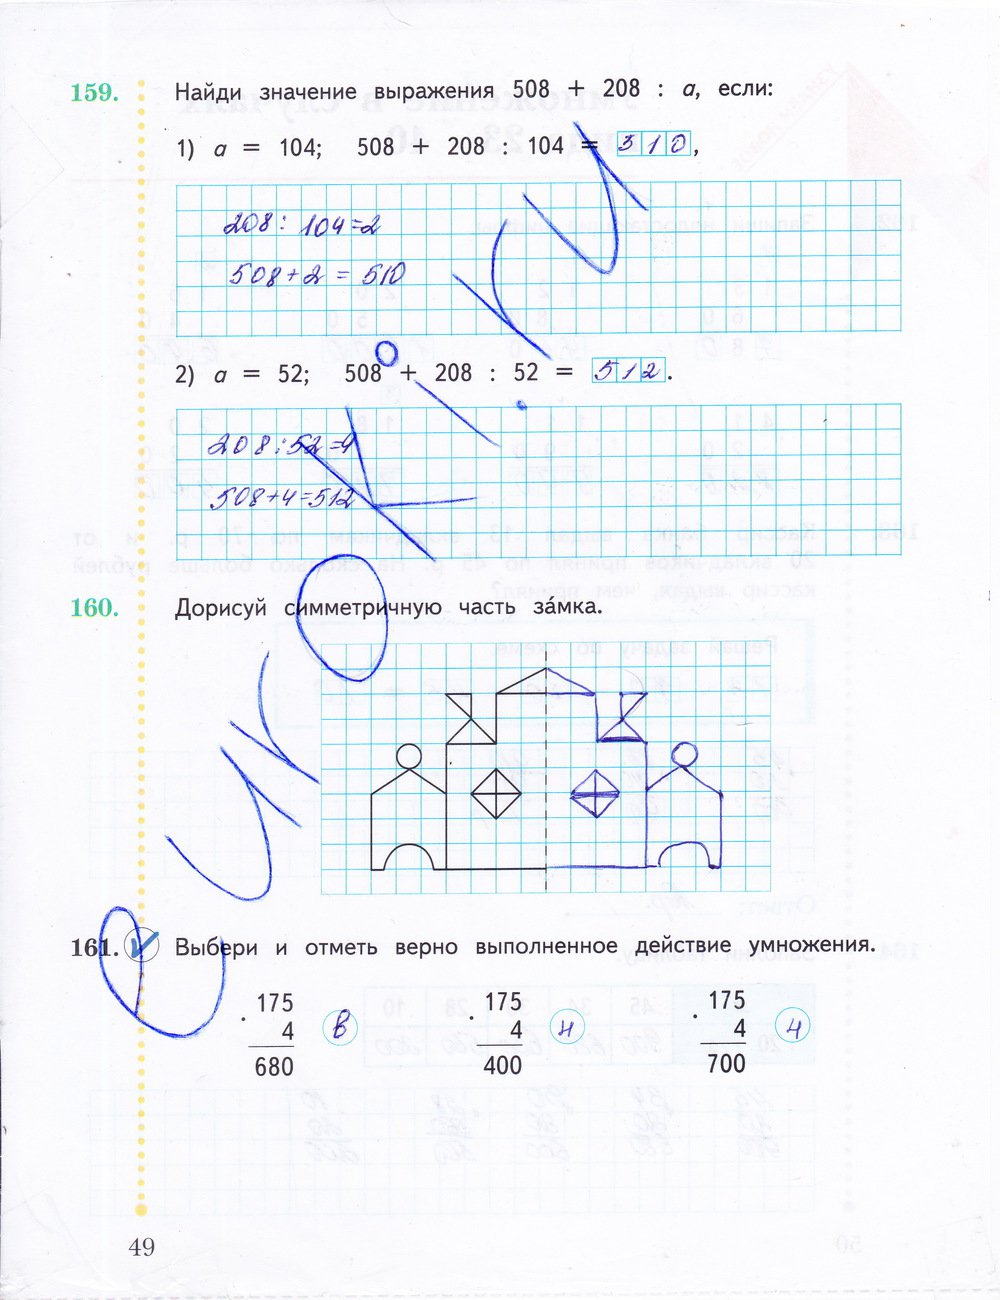 159. Найди значение выражения 508 + 208 : a, если:
1) a = 104; 508 + 208 : 104 = 510,
208 : 104 = 2
508 + 2 = 510
2) a = 52; 508 + 208 : 52 = 512.
208 : 52 = 4
508 + 4 = 512
160. Дорисуй симметричную часть за́мка.
161. Выбери и отметь верно выполненное действие умножения.
175 175 175
· 4 в · 4 н · 4 ч
680 400 700
49